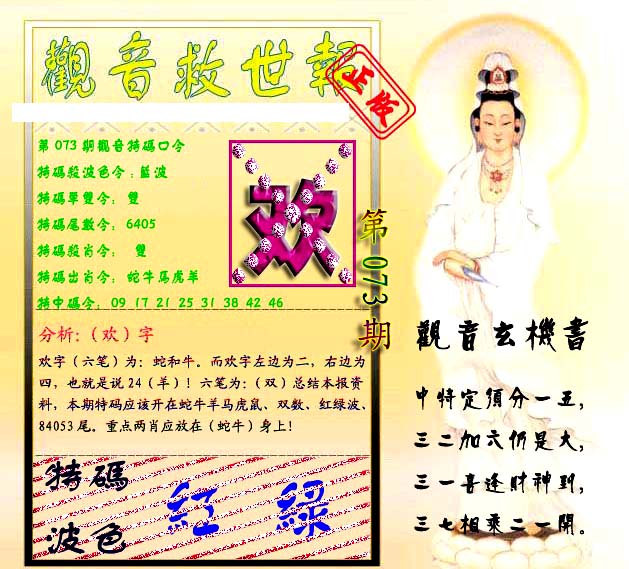 觀音救世報
正版
第 073 期觀音特碼口令
特碼殺波色令：藍波
特碼單雙令： 雙
特碼尾數令： 6405
特碼殺肖令： 雙
特碼出肖令： 蛇牛馬虎羊
特中碼令： 09 17 21 25 31 38 42 46
欢
第 073 期
分析:（欢）字
欢字（六笔）为：蛇和牛。而欢字左边为二，右边为
四，也就是说 24（羊）！六笔为：（双）总结本报资
料，本期特码应该开在蛇牛羊马虎鼠、双数、红绿波、
84053 尾。重点两肖应放在（蛇牛）身上！
特碼
波色
紅 綠
觀音玄機書
中特定須分一五，
三二加六仍是大，
三一喜逢財神到，
三七相乘二一開。